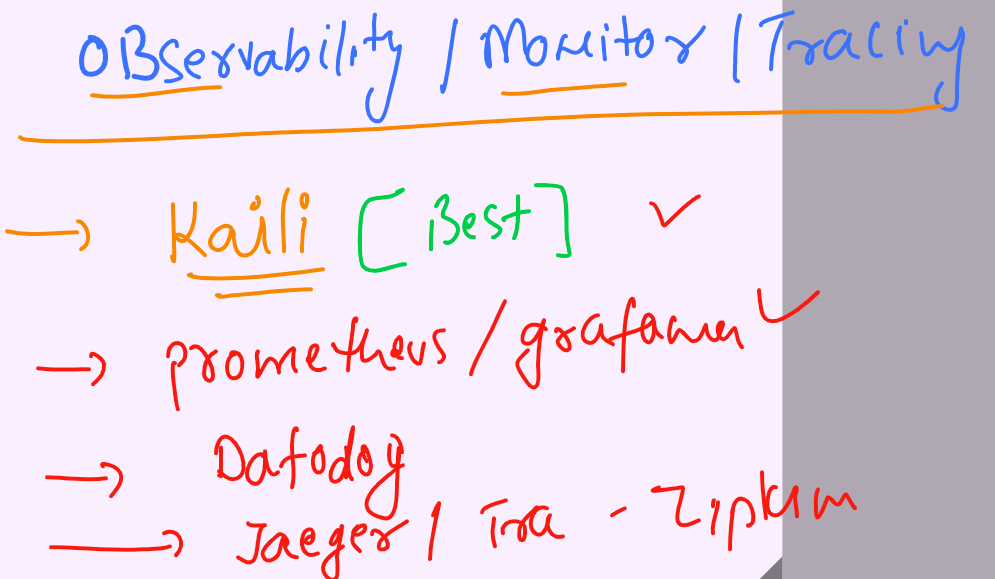 OBservability / Monitor / Tracing
→ Kaili [Best] ✓
→ prometheus / grafana ✓
→ Datadog
→ Jaeger / Tra - Zipkin